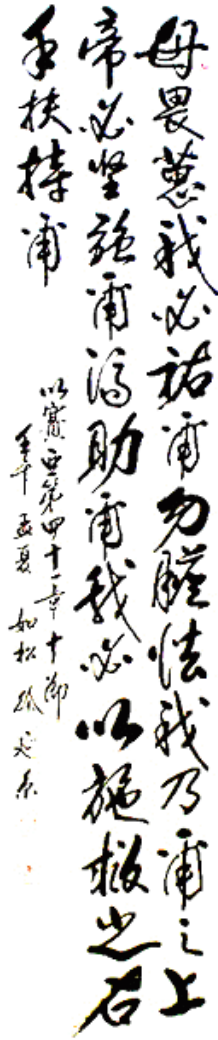 毋畏葸我必祐爾勿膽怯我乃爾之上
帝必坚強爾濟助爾我必以施救之右
手扶持爾
以賽亞第四十一章十節
午孟夏 如松